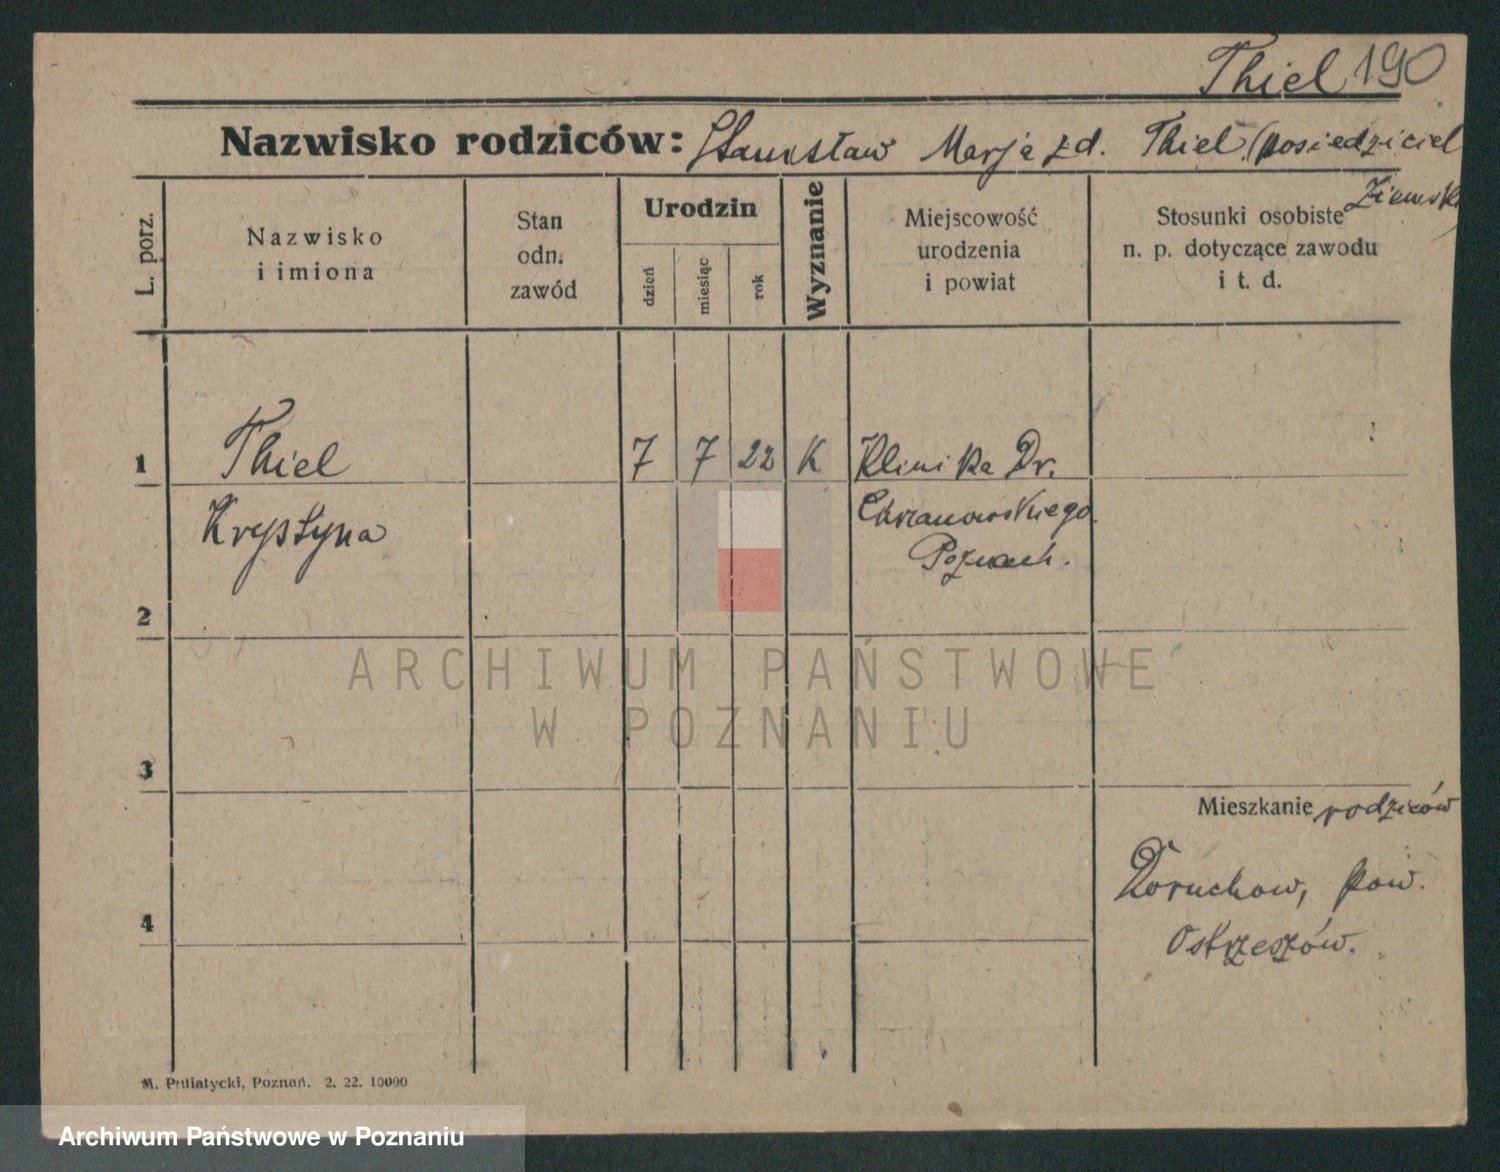 Thiel 190
Nazwisko rodziców: Stanisław Marja zd. Thiel (posiedziciel
Ziemski
L. porz.
Nazwisko
i imiona
Stan
odn.
zawód
Urodzin
dzień
miesiąc
rok
Wyznanie
Miejscowość
urodzenia
i powiat
Stosunki osobiste
n. p. dotyczące zawodu
i t. d.
1 Thiel 7 7 22 K Klinika Dr.
Krystyna Chrzanowskiego
Poznań.
2
ARCHIWUM PAŃSTWOWE
W POZNANIU
3
Mieszkanie rodziców
Doruchow, pow.
4
Ostrzeszów.
M. Putiatycki, Poznań. 2. 22. 10000
Archiwum Państwowe w Poznaniu